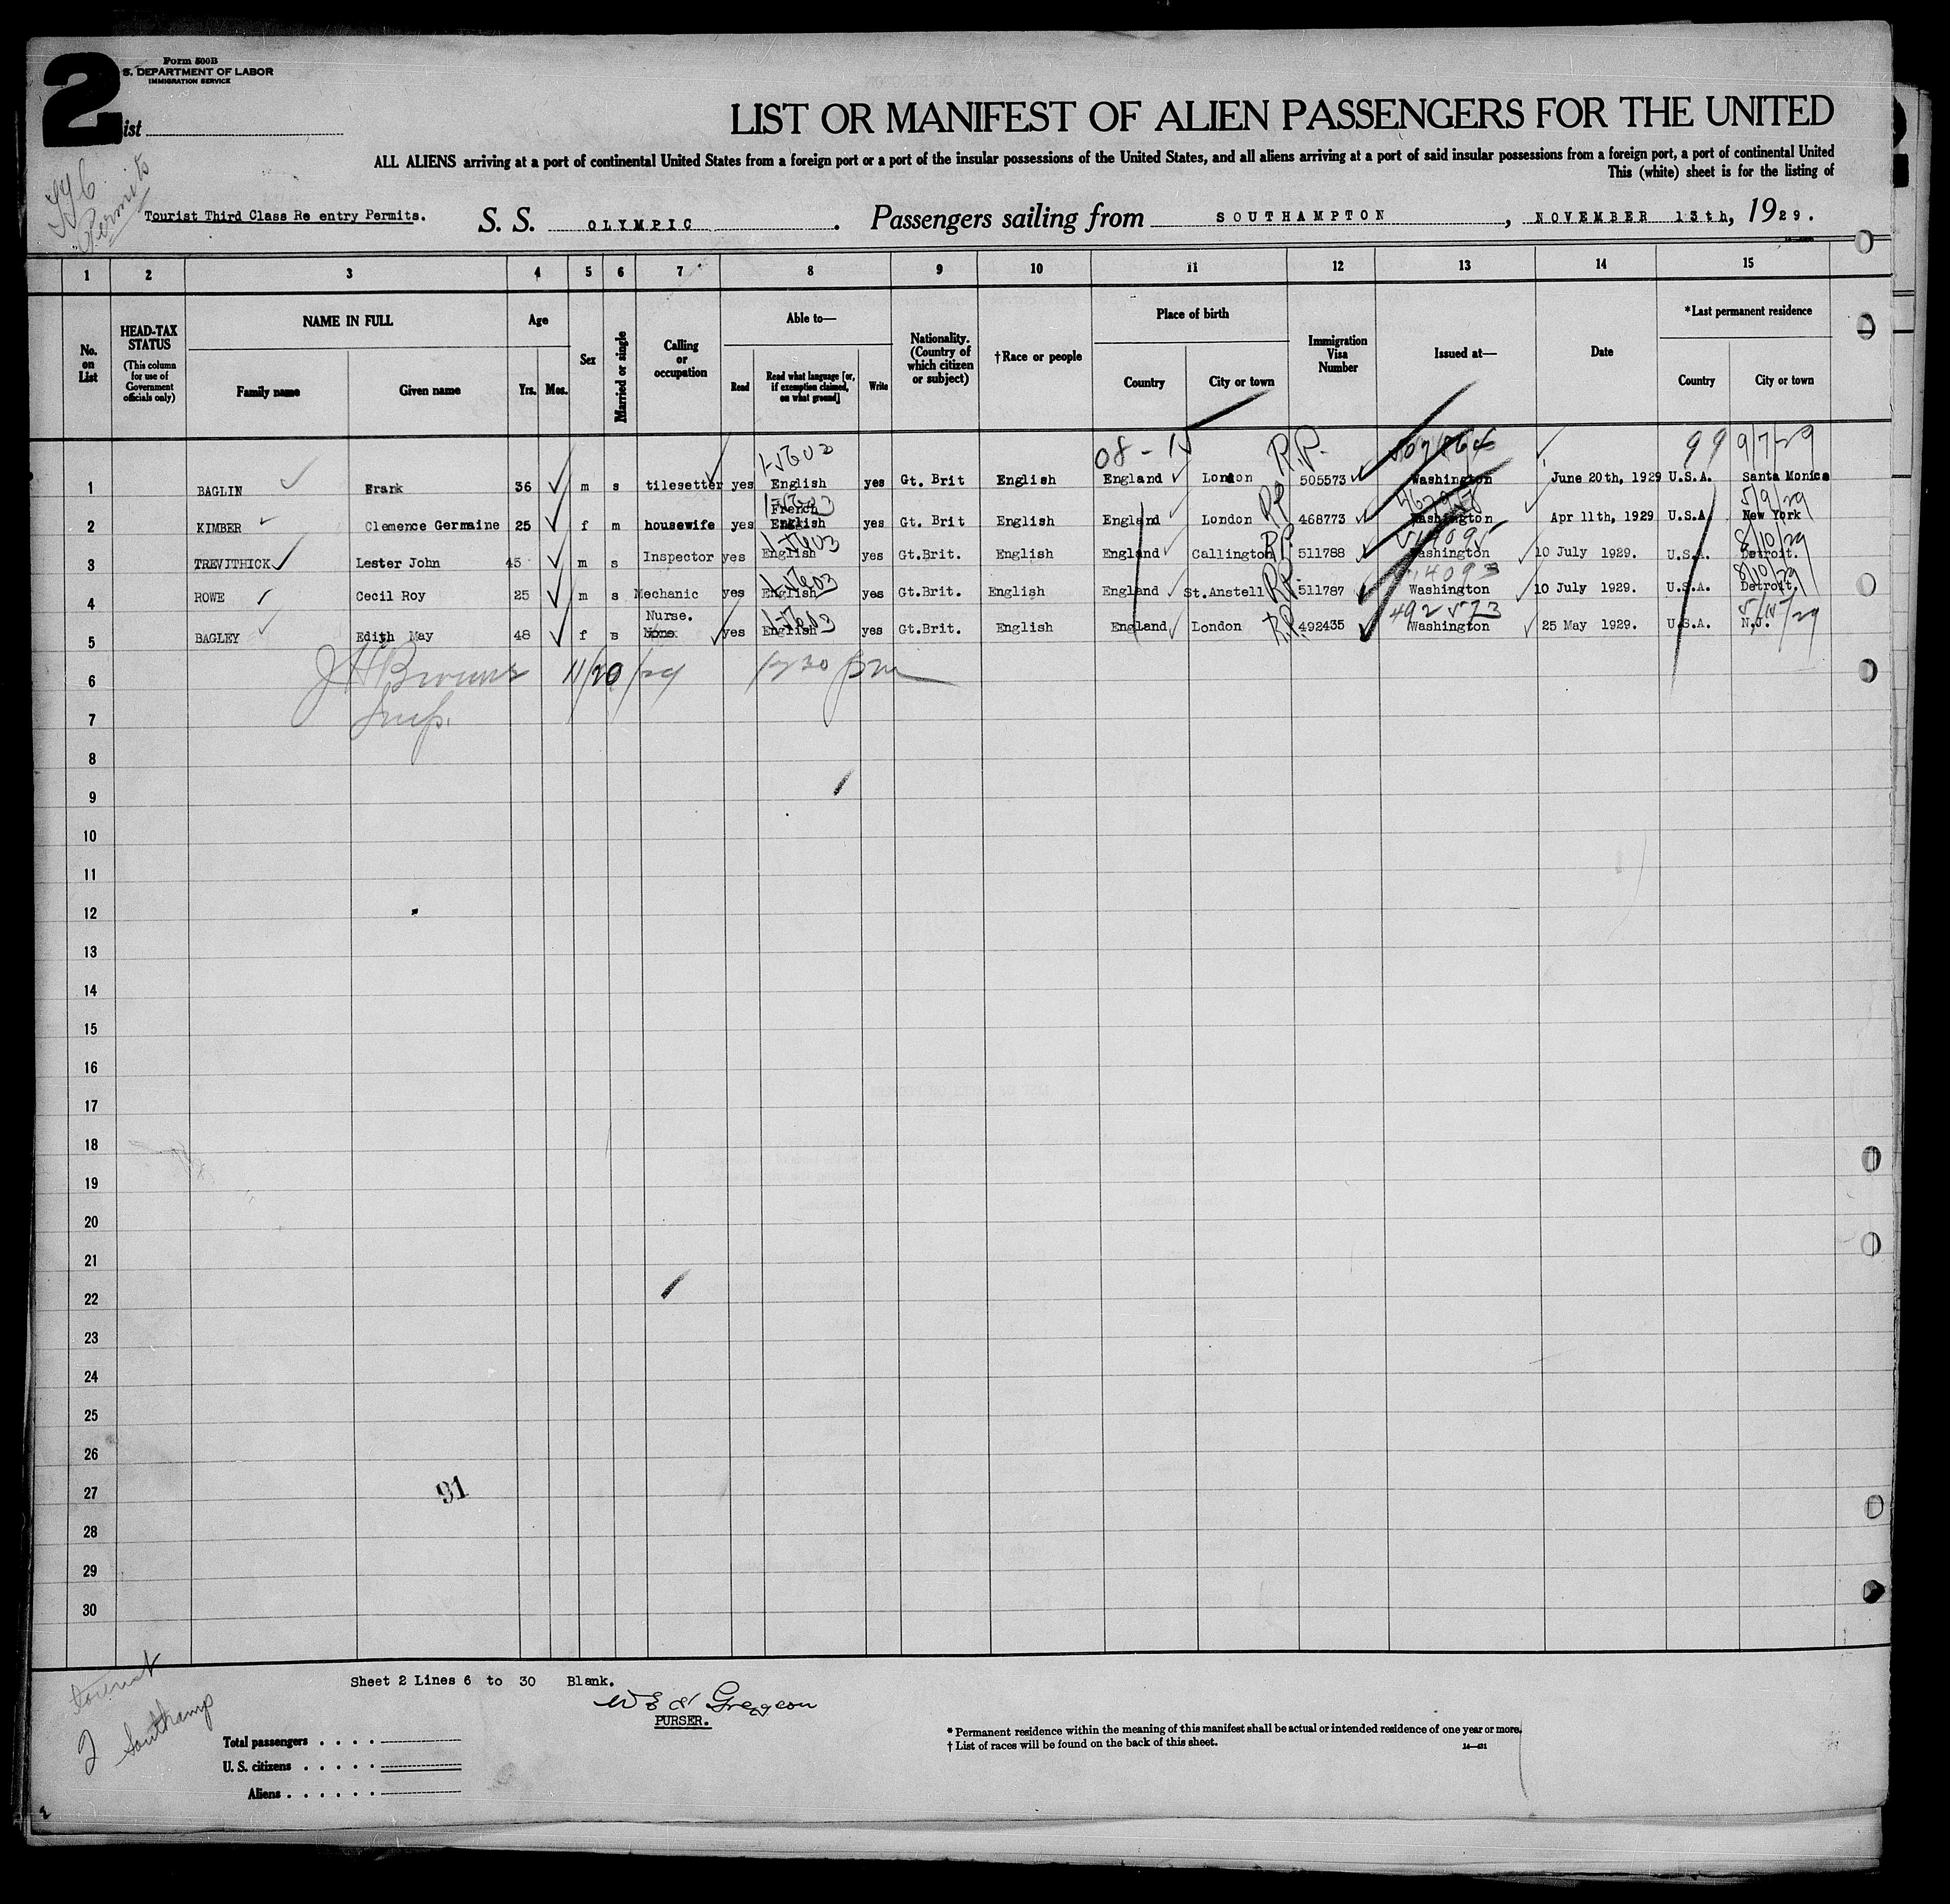 2
Form 500B
S. DEPARTMENT OF LABOR
IMMIGRATION SERVICE
ist
LIST OR MANIFEST OF ALIEN PASSENGERS FOR THE UNITED
ALL ALIENS arriving at a port of continental United States from a foreign port or a port of the insular possessions of the United States, and all aliens arriving at a port of said insular possessions from a foreign port, a port of continental United
This (white) sheet is for the listing of
Permits
Tourist Third Class Re entry Permits. S. S. OLYMPIC. Passengers sailing from SOUTHAMPTON, NOVEMBER 13th, 1929.
1 2 3 4 5 6 7 8 9 10 11 12 13 14 15
No. on List
HEAD-TAX STATUS (This column for use of Government officials only)
NAME IN FULL Family name Given name
Age Yrs. Mos.
Sex
Married or single
Calling or occupation
Able to— Read Read what language [or, if exemption claimed, on what ground] Write
Nationality. (Country of which citizen or subject)
†Race or people
Place of birth Country City or town
Immigration Visa Number
Issued at—
Date
*Last permanent residence Country City or town
08 - R.P. 99 9/7-29
1 BAGLIN Frark 36 m s tilesetter yes English yes Gt. Brit English England London 505573 Washington June 20th, 1929 U.S.A. Santa Monica
French R.P. 5/9/29
2 KIMBER Clemence Germaine 25 f m housewife yes English yes Gt. Brit English England London 468773 Washington Apr 11th, 1929 U.S.A New York
R.P. 8/10/29
3 TREVITHICK Lester John 45 m s Inspector yes English yes Gt.Brit. English England Callington 511788 Washington 10 July 1929. U.S.A. Detroit.
R.P. 8/10/29
4 ROWE Cecil Roy 25 m s Mechanic yes English yes Gt.Brit. English England St.Anstell 511787 Washington 10 July 1929. U.S.A. Detroit.
Nurse. R.P. 492573
5 BAGLEY Edith May 48 f s None yes English yes Gt.Brit. English England London 492435 Washington 25 May 1929. U.S.A. N.J.
6 11/20/29 1230 pm
7 Insp.
8
9
10
11
12
13
14
15
16
17
18
19
20
21
22
23
24
25
26
27 91
28
29
30
tourist
2 Southamp
Sheet 2 Lines 6 to 30 Blank.
PURSER.
Total passengers
U. S. citizens
Aliens
* Permanent residence within the meaning of this manifest shall be actual or intended residence of one year or more.
† List of races will be found on the back of this sheet.
2